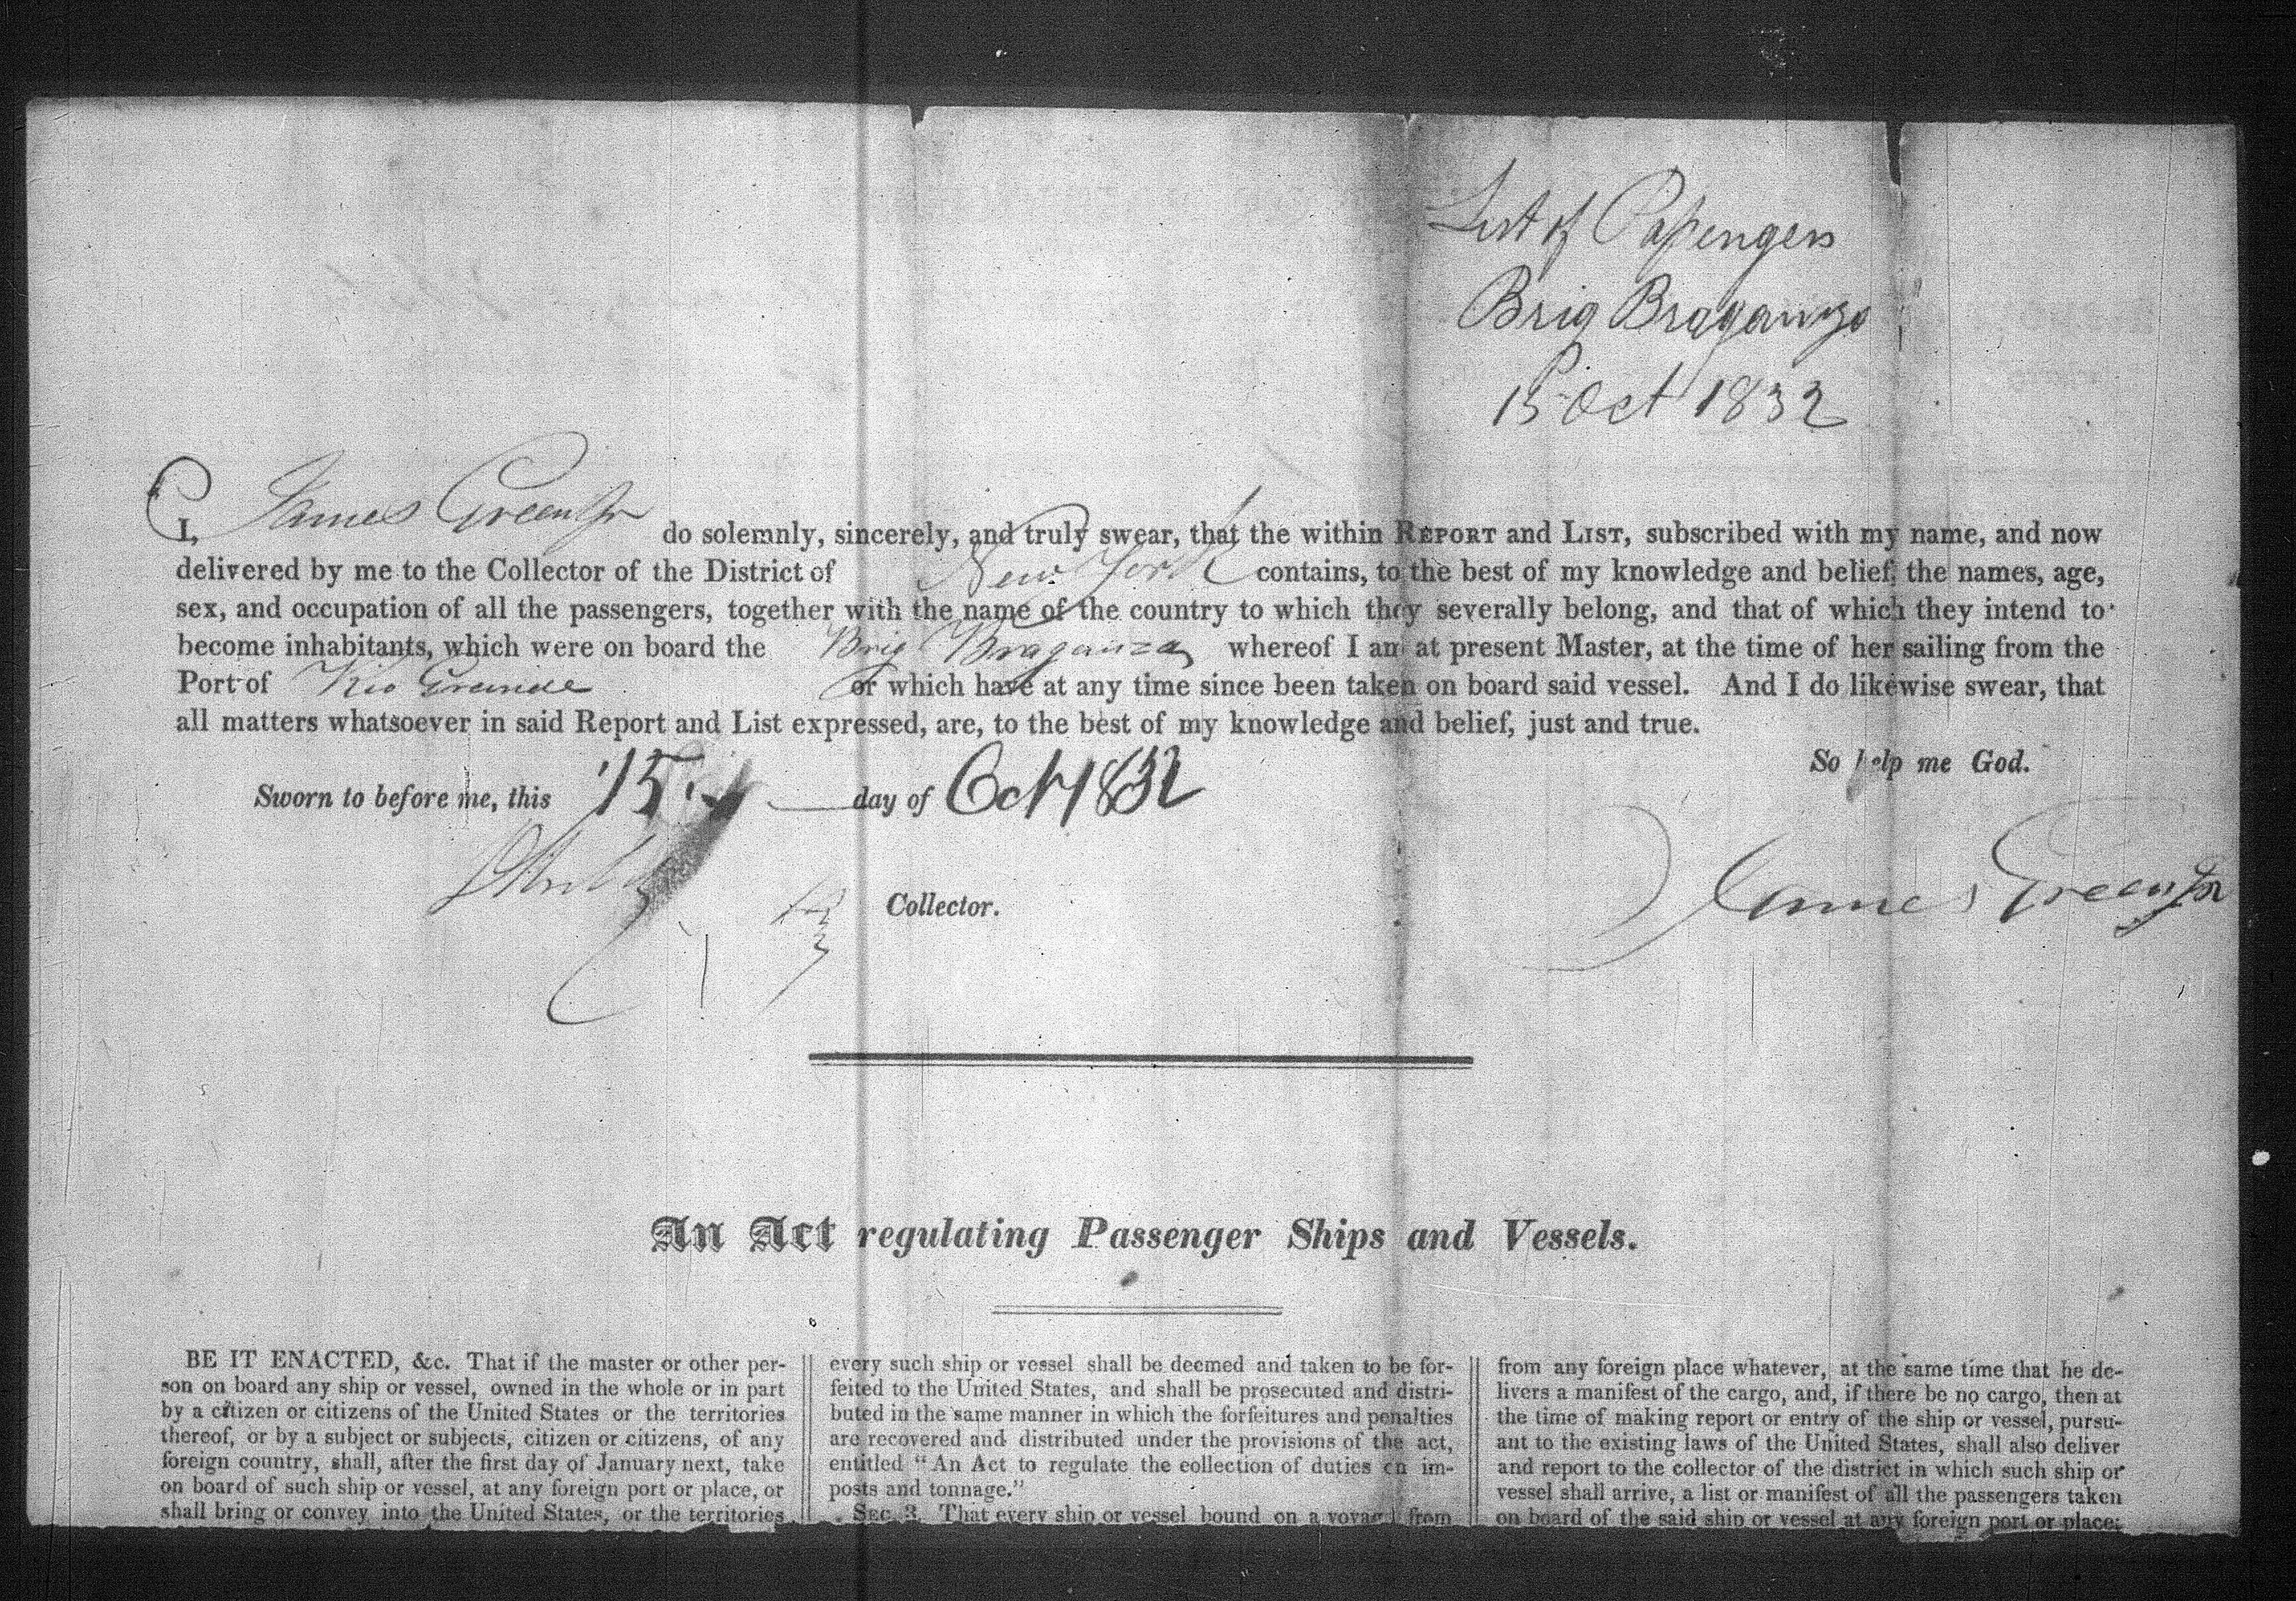 List of Passengers
Brig Braganza
15 Oct 1832
I, James Green Jr do solemnly, sincerely, and truly swear, that the within REPORT and LIST, subscribed with my name, and now
delivered by me to the Collector of the District of New York contains, to the best of my knowledge and belief, the names, age,
sex, and occupation of all the passengers, together with the name of the country to which they severally belong, and that of which they intend to
become inhabitants, which were on board the Brig Braganza whereof I am at present Master, at the time of her sailing from the
Port of Rio Grande or which have at any time since been taken on board said vessel. And I do likewise swear, that
all matters whatsoever in said Report and List expressed, are, to the best of my knowledge and belief, just and true.
So help me God.
Sworn to before me, this 15 day of Oct 1832
James Green Jr
Collector.
An Act regulating Passenger Ships and Vessels.
BE IT ENACTED, &c. That if the master or other per-
son on board any ship or vessel, owned in the whole or in part
by a citizen or citizens of the United States or the territories
thereof, or by a subject or subjects, citizen or citizens, of any
foreign country, shall, after the first day of January next, take
on board of such ship or vessel, at any foreign port or place, or
shall bring or convey into the United States, or the territories
every such ship or vessel shall be deemed and taken to be for-
feited to the United States, and shall be prosecuted and distri-
buted in the same manner in which the forfeitures and penalties
are recovered and distributed under the provisions of the act,
entitled "An Act to regulate the collection of duties on im-
posts and tonnage."
SEC. 3. That every ship or vessel bound on a voyage from
from any foreign place whatever, at the same time that he de-
livers a manifest of the cargo, and, if there be no cargo, then at
the time of making report or entry of the ship or vessel, pursu-
ant to the existing laws of the United States, shall also deliver
and report to the collector of the district in which such ship or
vessel shall arrive, a list or manifest of all the passengers taken
on board of the said ship or vessel at any foreign port or place;